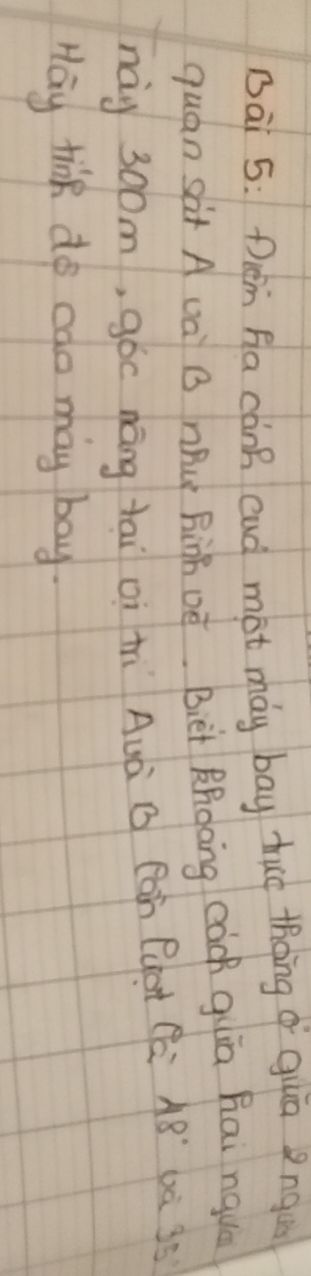 Bài 5: Điểm hạ cánh cuả một máy bay trực thăng ở giữa 2 người
quan sát A và B như hình vẽ. Biết khoảng cách giữa hai người
này 300m, góc nâng tại vị trí A và B lần lượt là 48° và 35°
Hãy tính độ cao máy bay.